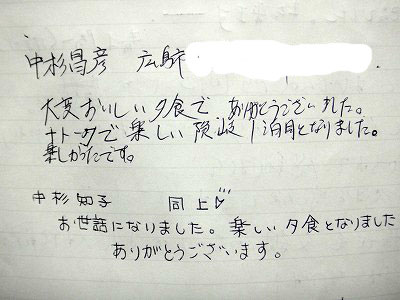 中杉昌彦 広島市
大変おいしい夕食で ありがとうございました。
トークで楽しい隠岐1泊目となりました。
楽しかったです。
中杉知子 同上
お世話になりました。楽しい夕食となりました
ありがとうございます。